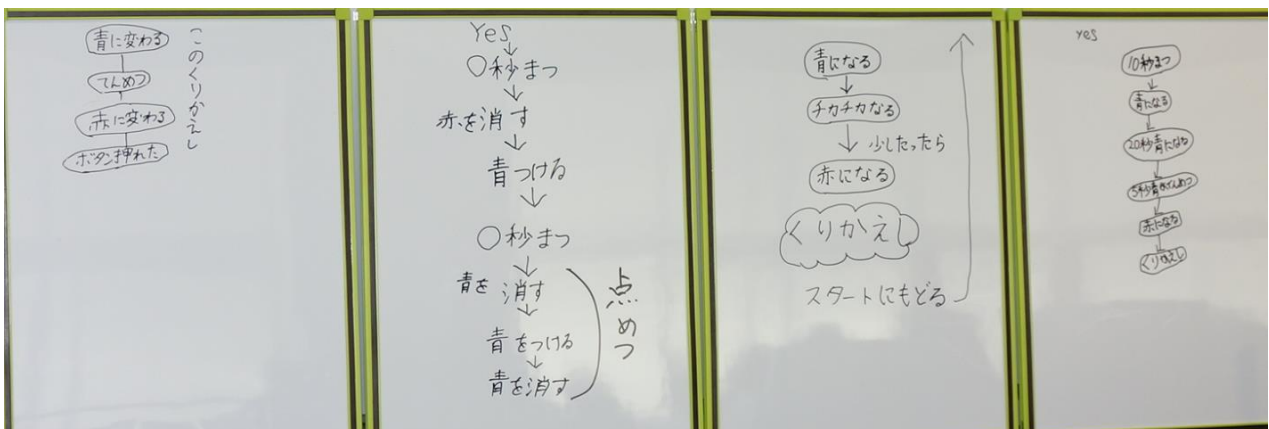 青に変わる
てんめつ
赤に変わる
ボタン押れた
このくりかえし
Yes
○秒まつ
赤を消す
青つける
○秒まつ
青を消す
青をつける
青を消す
点めつ
青になる
チカチカなる
少したったら
赤になる
くりかえし
スタートにもどる
yes
10秒まつ
青になる
20秒青になる
5秒青がてんめつ
赤になる
くりかえし